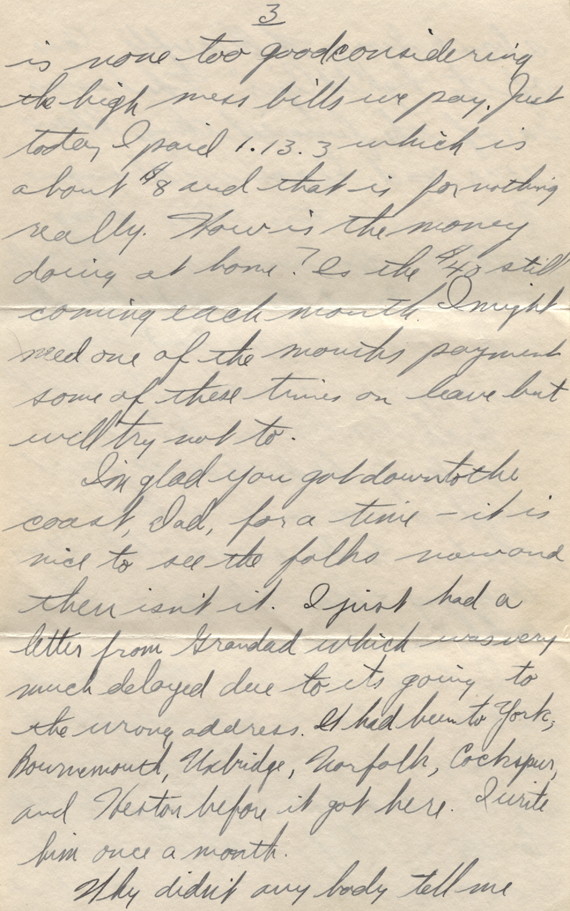 3
is none too good considering
the high mess bills we pay. Just
today I paid 1.13.3 which is
about $8 and that is for nothing
really. How is the money
doing at home? Is the $40 still
coming each month. I might
need one of the months payment
some of these times on leave but
will try not to.
I'm glad you got down to the
coast, Dad, for a time - it is
nice to see the folks now and
then isn't it. I just had a
letter from Grandad which was very
much delayed due to its going to
the wrong address. It had been to York,
Bournemouth, Uxbridge, Norfolk, Cockspur,
and Heston before it got here. I write
him once a month.
Why didn't any body tell me